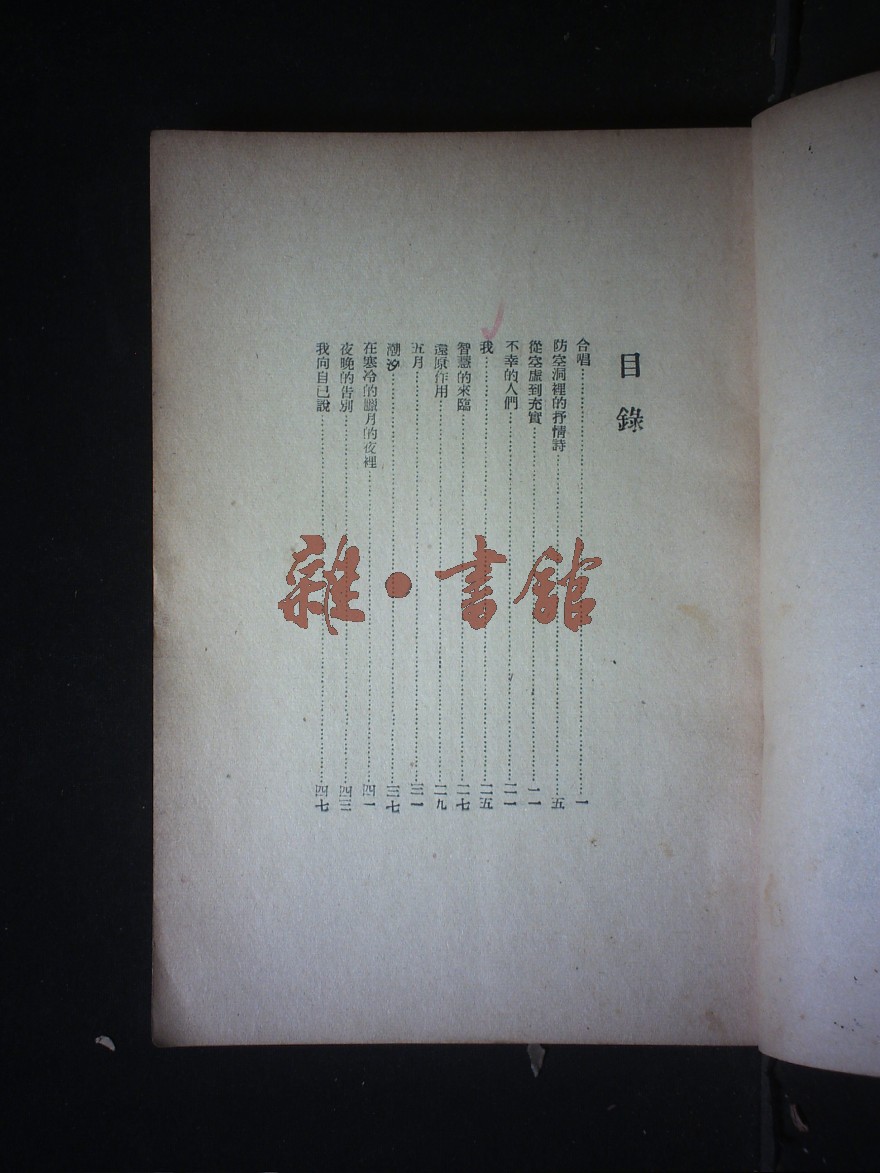 目錄
合唱……一
防空洞裡的抒情詩……五
從空虛到充實……一一
不幸的人們……二一
我……二五
智慧的來臨……二七
還原作用……二九
五月……三一
潮汐……三七
在寒冷的臘月的夜裡……四一
夜晚的告別……四三
我向自己說……四七
雜·書館